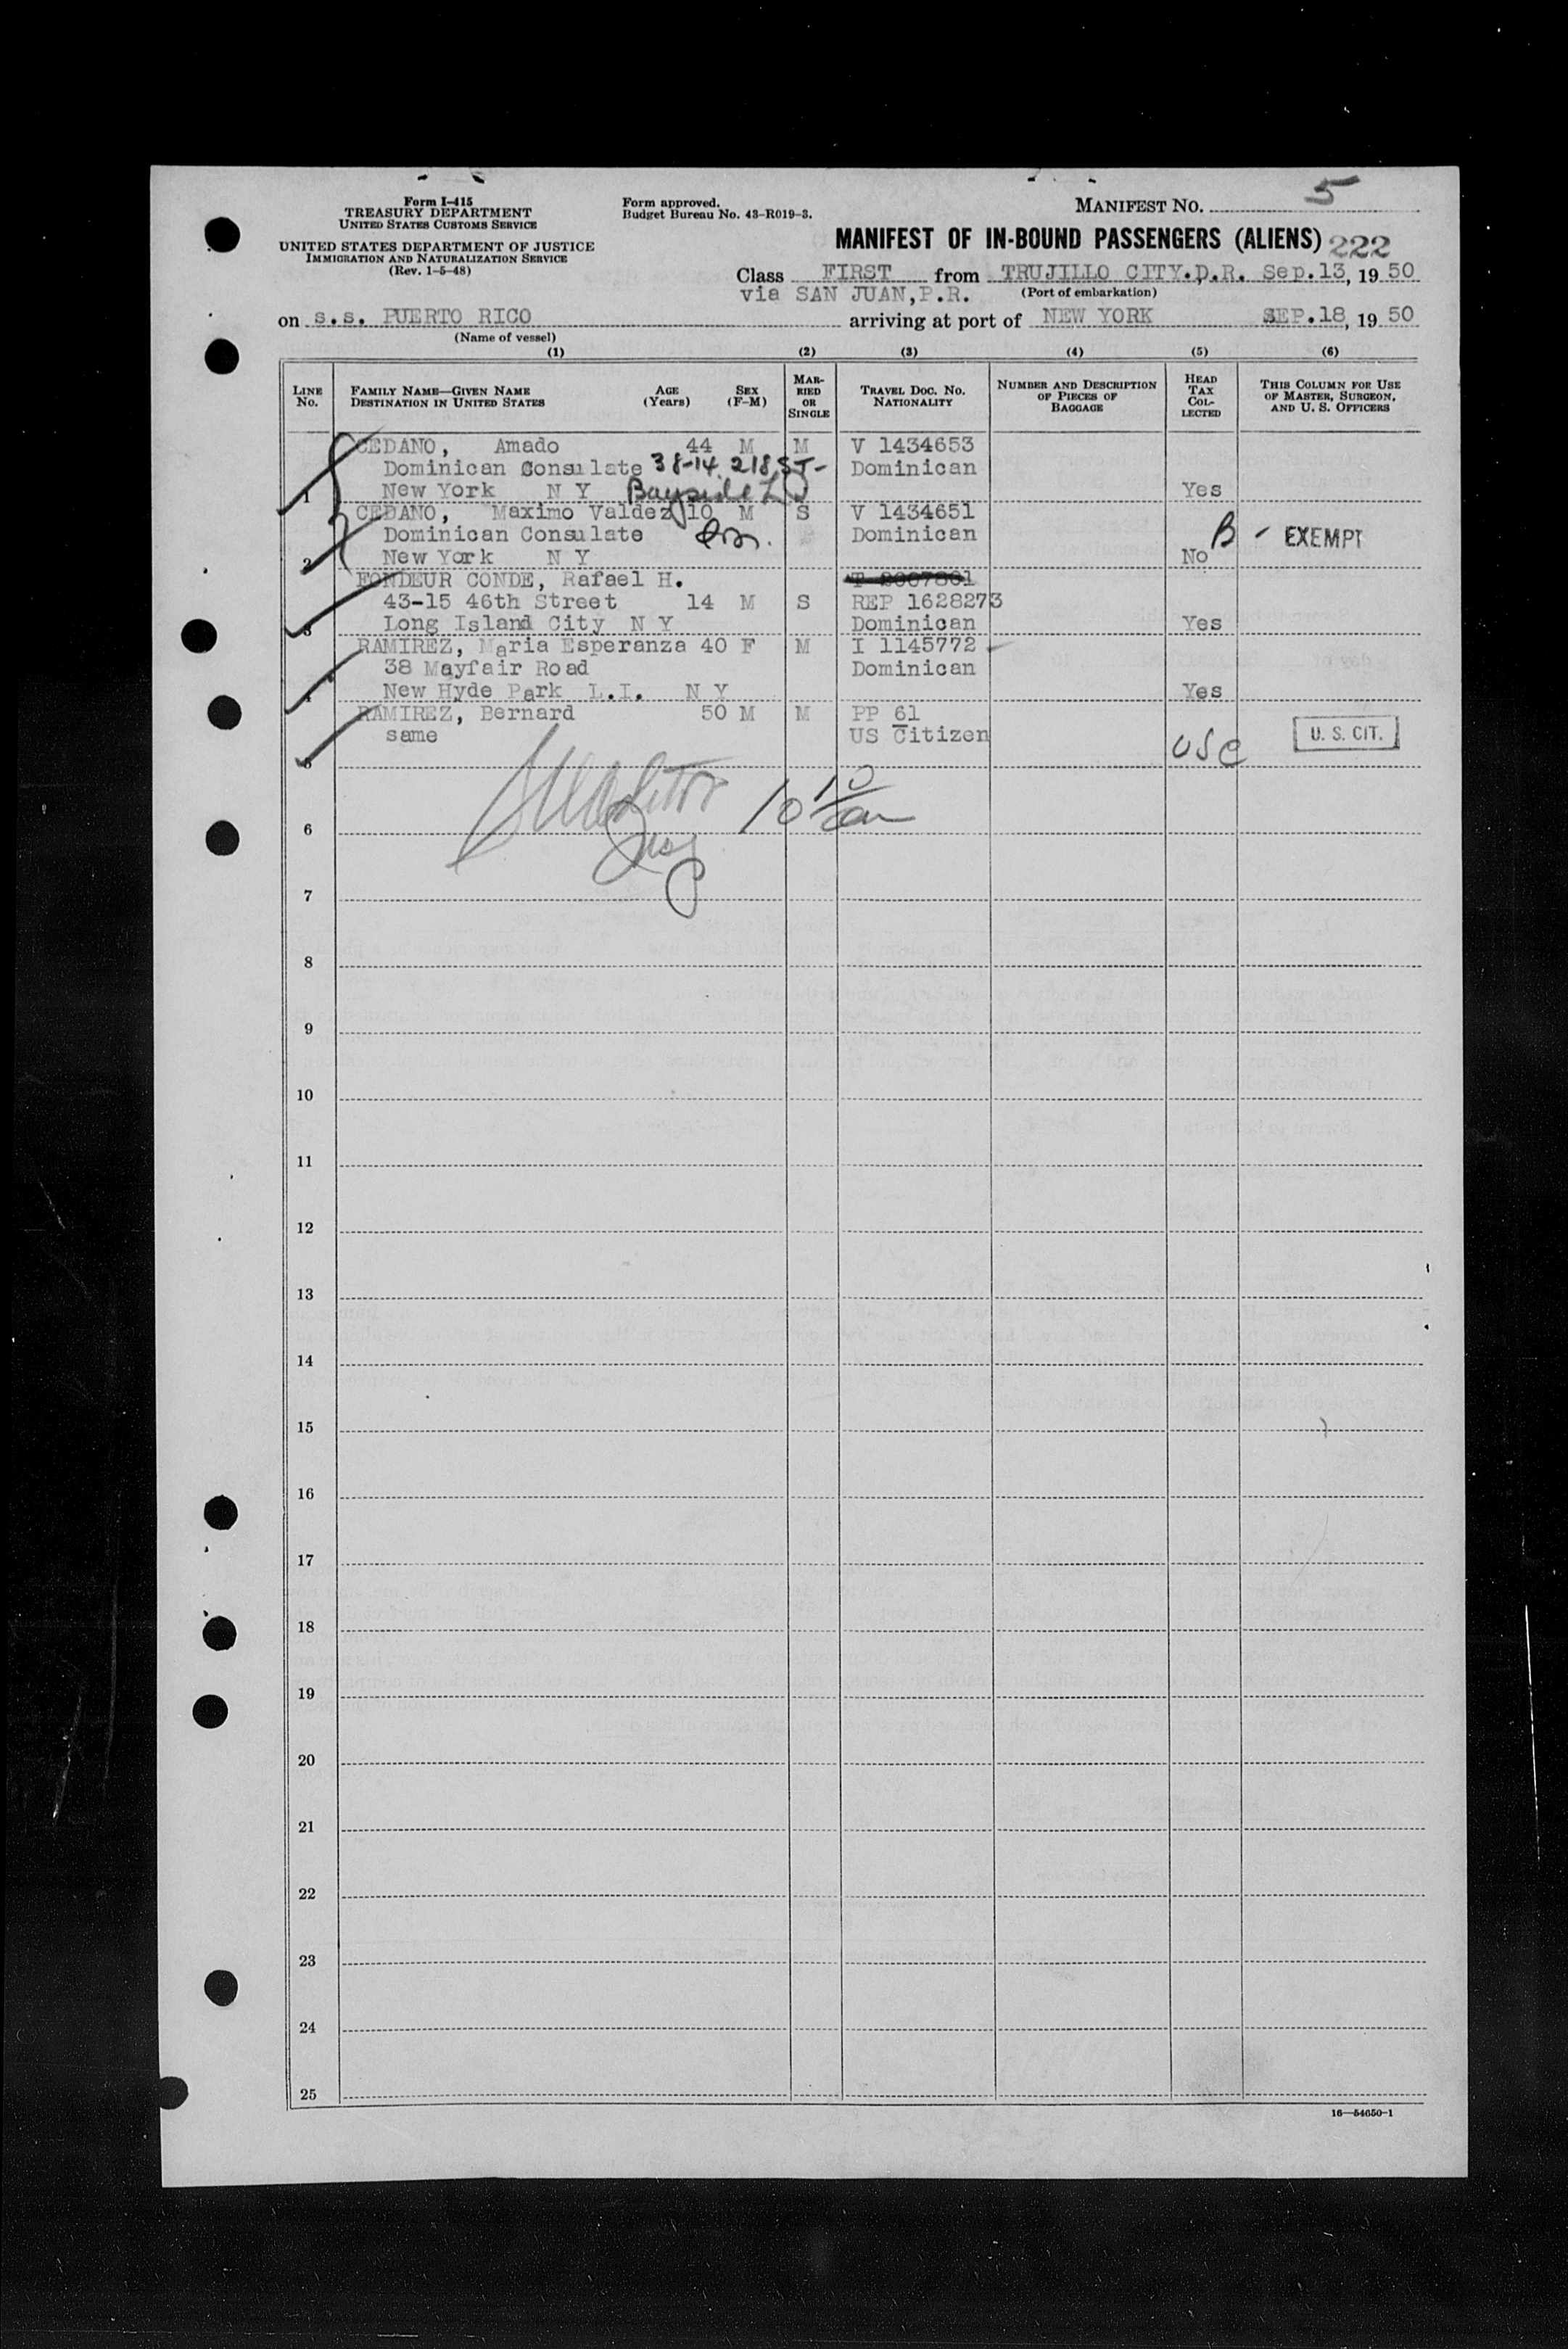 Form I-415
TREASURY DEPARTMENT
UNITED STATES CUSTOMS SERVICE
UNITED STATES DEPARTMENT OF JUSTICE
IMMIGRATION AND NATURALIZATION SERVICE
(Rev. 1-5-48)
Form approved.
Budget Bureau No. 43-R019-3.
MANIFEST NO. 5
MANIFEST OF IN-BOUND PASSENGERS (ALIENS) 222
Class FIRST from TRUJILLO CITY.D.R. Sep.13, 19 50
via SAN JUAN,P.R. (Port of embarkation)
on s.s. PUERTO RICO arriving at port of NEW YORK SEP.18, 19 50
(Name of vessel)
(1) (2) (3) (4) (5) (6)
LINE No. FAMILY NAME—GIVEN NAME DESTINATION IN UNITED STATES AGE (Years) SEX (F-M) MARRIED OR SINGLE TRAVEL DOC. NO. NATIONALITY NUMBER AND DESCRIPTION OF PIECES OF BAGGAGE HEAD TAX COLLECTED THIS COLUMN FOR USE OF MASTER, SURGEON, AND U. S. OFFICERS
CEDANO, Amado 44 M M V 1434653
Dominican Consulate 38-14 218 ST- Dominican
1 New York N Y Bayside L I Yes
CEDANO, Maximo Valdez 10 M S V 1434651
Dominican Consulate Dominican B - EXEMPT
2 New York N Y No
FONDEUR CONDE, Rafael H.
43-15 46th Street 14 M S REP 1628273
3 Long Island City N Y Dominican Yes
RAMIREZ, Maria Esperanza 40 F M I 1145772
38 Mayfair Road Dominican
4 New Hyde Park L.I. N Y Yes
RAMIREZ, Bernard 50 M M PP 61
same US Citizen USC U. S. CIT.
5
10 10 am
6
7
8
9
10
11
12
13
14
15
16
17
18
19
20
21
22
23
24
25
16—54650-1